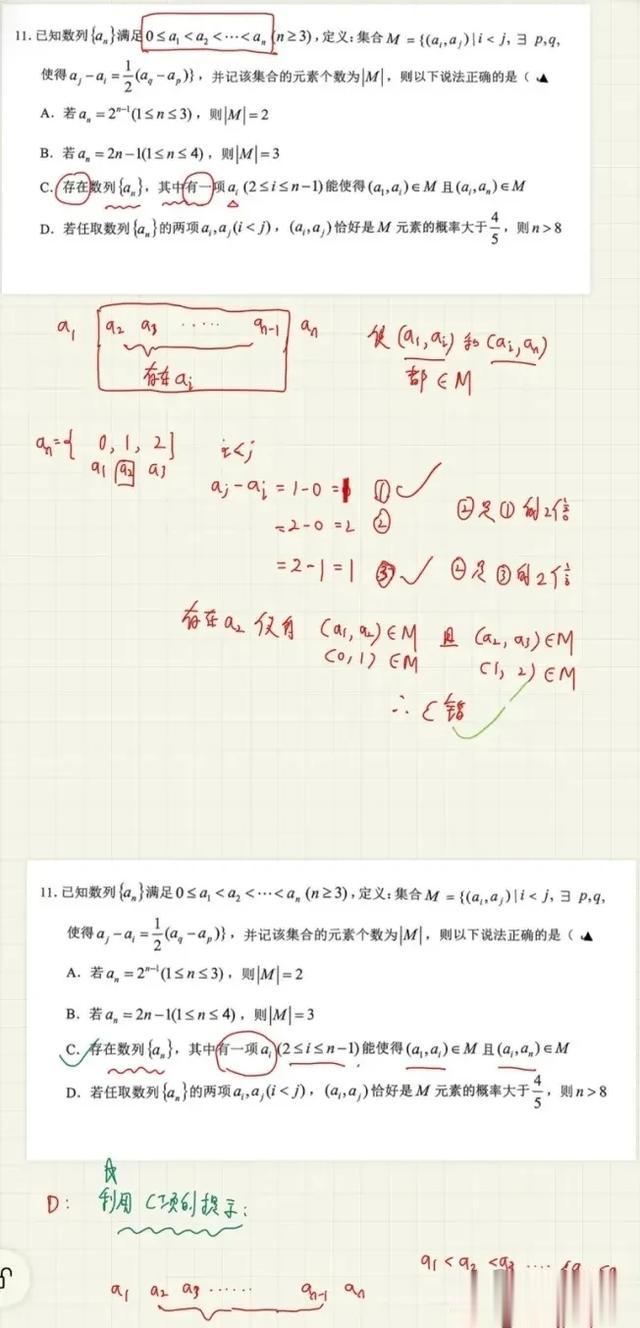 11. 已知数列{aₙ}满足0≤a₁<a₂<⋯<aₙ(n≥3),定义:集合M={(aᵢ,aⱼ)|i<j,∃ p,q,
使得aⱼ-aᵢ=1/2(a_q-a_p)},并记该集合的元素个数为|M|,则以下说法正确的是(▲
A. 若aₙ=2ⁿ⁻¹(1≤n≤3),则|M|=2
B. 若aₙ=2n-1(1≤n≤4),则|M|=3
C. 存在数列{aₙ},其中有一项aᵢ(2≤i≤n-1)能使得(a₁,aᵢ)∈M且(aᵢ,aₙ)∈M
D. 若任取数列{aₙ}的两项aᵢ,aⱼ(i<j),(aᵢ,aⱼ)恰好是M元素的概率大于4/5,则n>8
a₁ a₂ a₃ ⋯⋯ aₙ₋₁ aₙ 使(a₁,aᵢ)和(aᵢ,aₙ)
存在aᵢ 都∈M
aₙ={0,1,2} i<j
a₁ a₂ a₃
aⱼ-aᵢ=1-0=1 ①
=2-0=2 ② ②是①的2倍
=2-1=1 ③ ②是③的2倍
存在a₂仅有(a₁,a₂)∈M且(a₂,a₃)∈M
(0,1)∈M (1,2)∈M
∴C错
11. 已知数列{aₙ}满足0≤a₁<a₂<⋯<aₙ(n≥3),定义:集合M={(aᵢ,aⱼ)|i<j,∃ p,q,
使得aⱼ-aᵢ=1/2(a_q-a_p)},并记该集合的元素个数为|M|,则以下说法正确的是(▲
A. 若aₙ=2ⁿ⁻¹(1≤n≤3),则|M|=2
B. 若aₙ=2n-1(1≤n≤4),则|M|=3
C. 存在数列{aₙ},其中有一项aᵢ(2≤i≤n-1)能使得(a₁,aᵢ)∈M且(aᵢ,aₙ)∈M
D. 若任取数列{aₙ}的两项aᵢ,aⱼ(i<j),(aᵢ,aⱼ)恰好是M元素的概率大于4/5,则n>8
D: 利用C项的提示:
a₁<a₂<a₃ ⋯
a₁ a₂ a₃ ⋯⋯ aₙ₋₁ aₙ